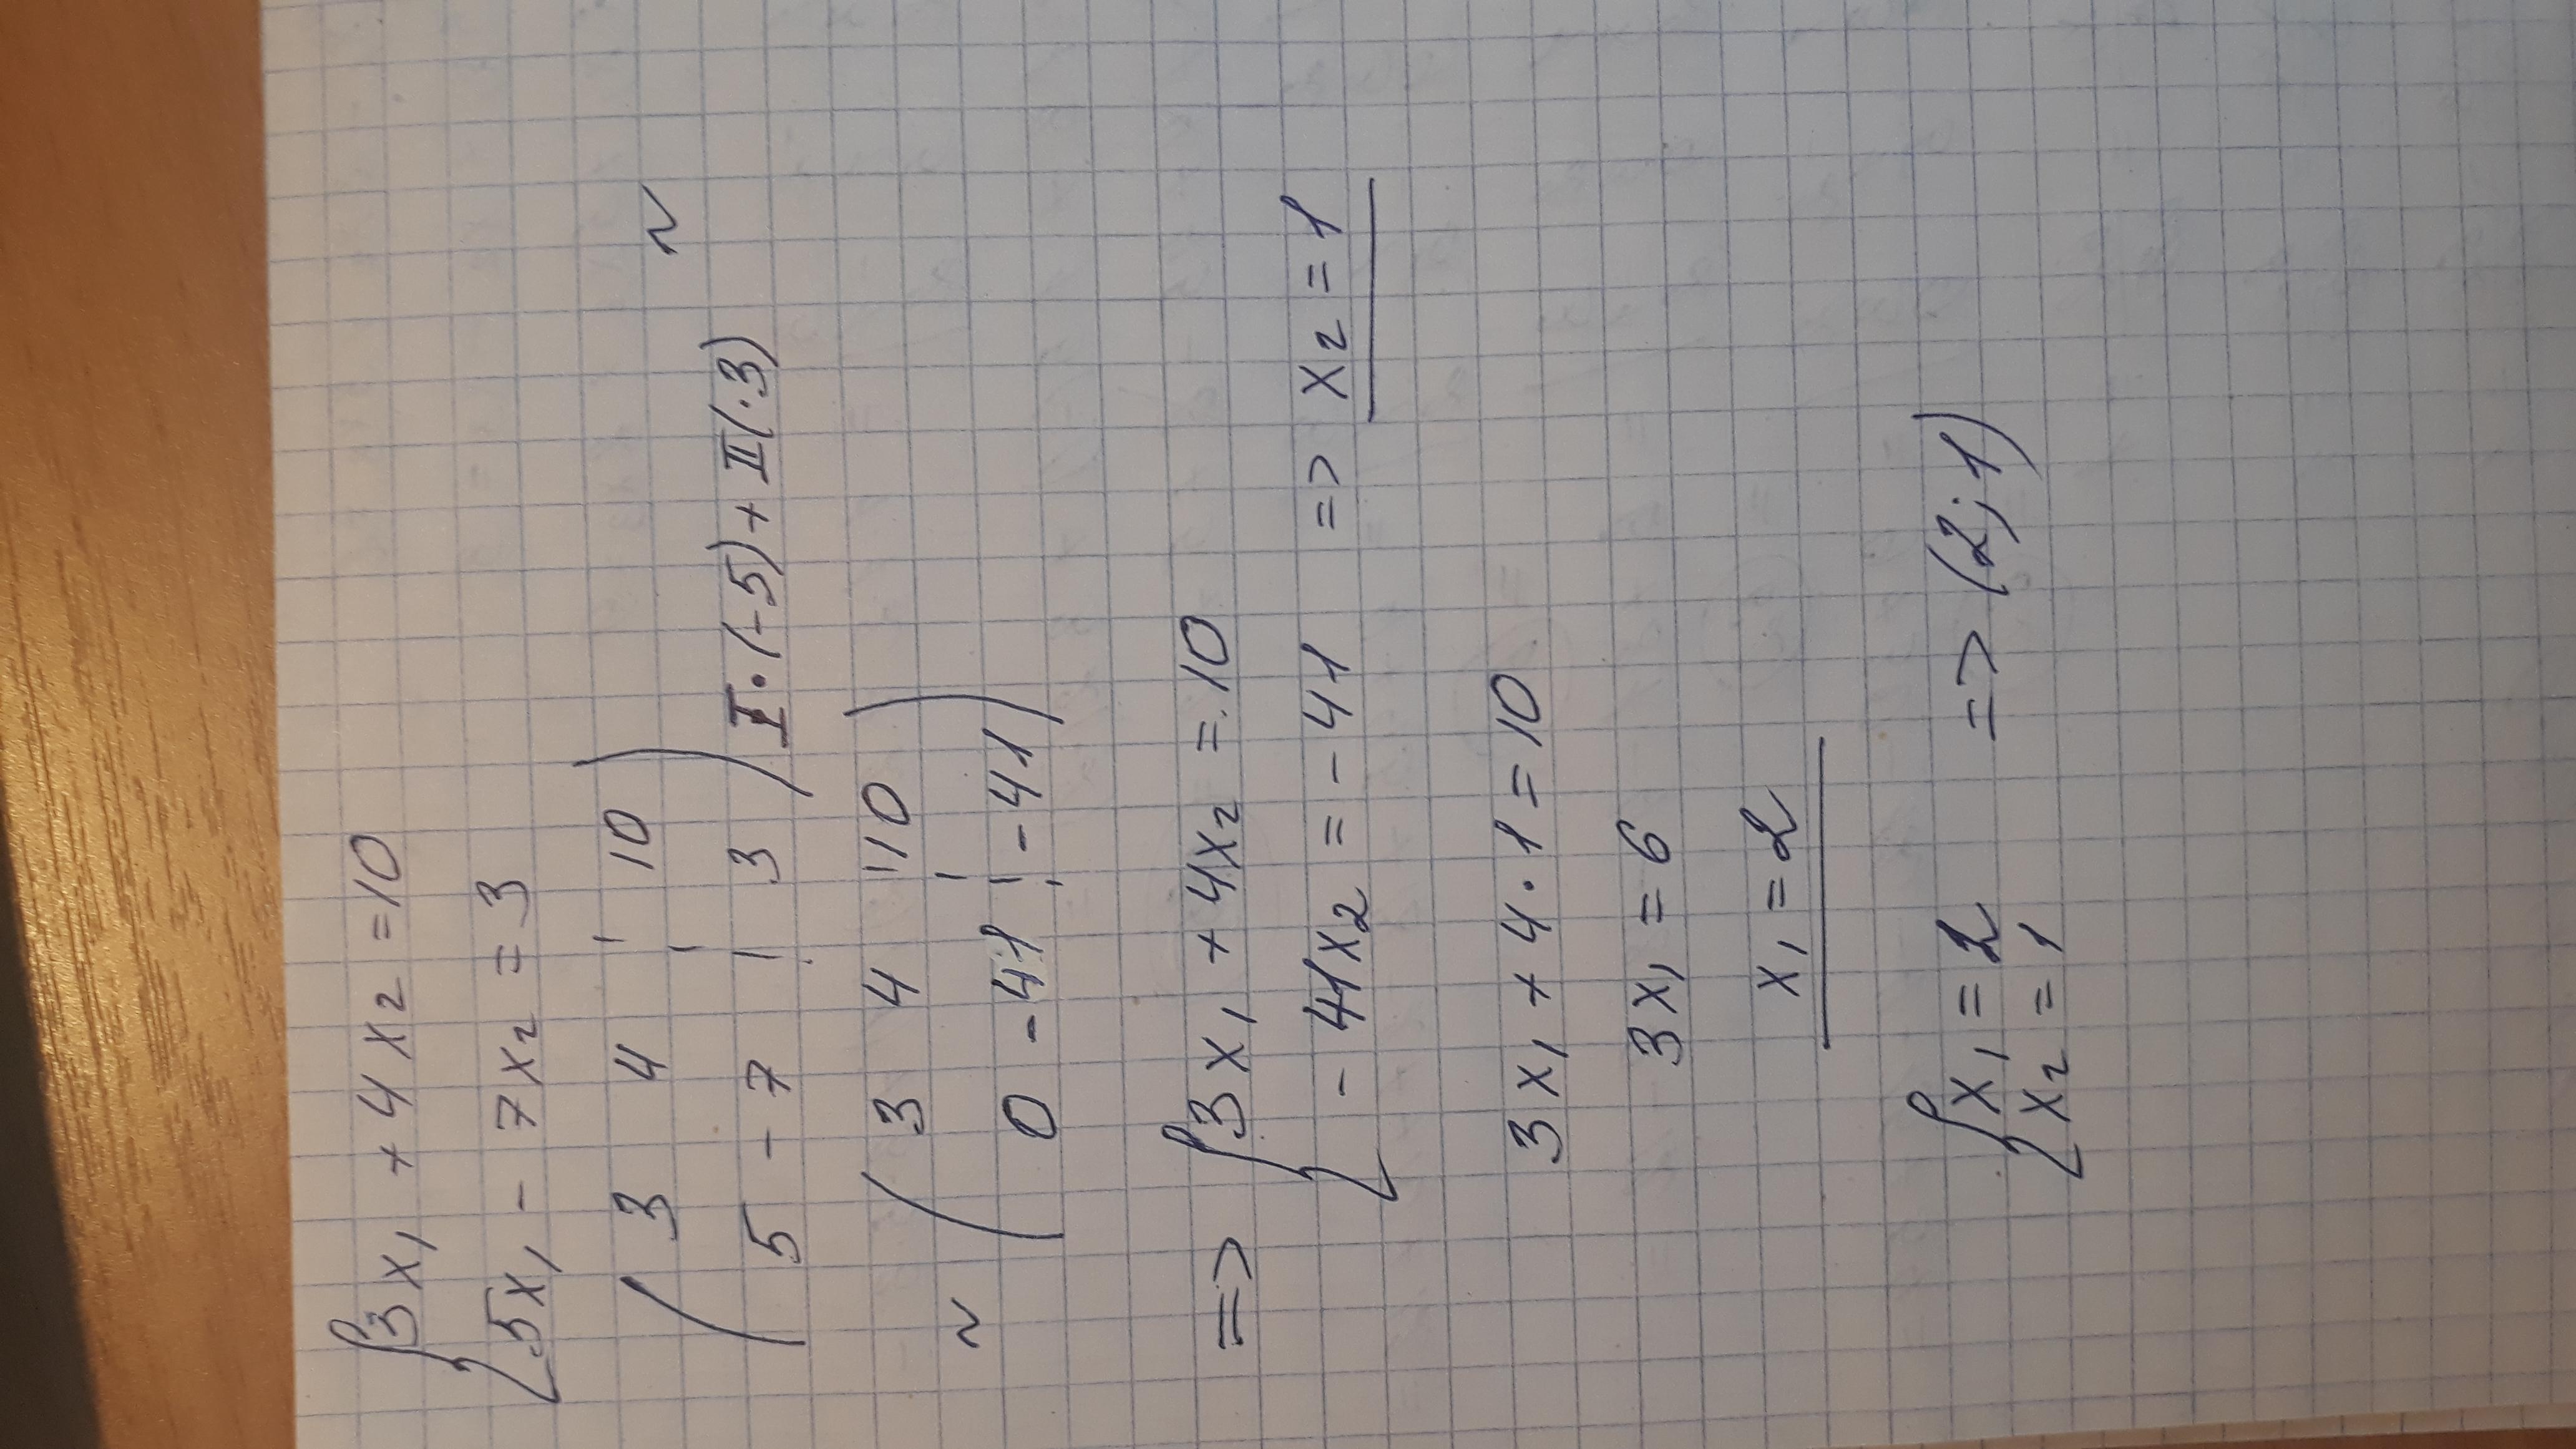 {3x₁ + 4x₂ = 10
{5x₁ - 7x₂ = 3
( 3 4 | 10 )
( 5 -7 | 3 ) I·(-5) + II(·3) ~
~ ( 3 4 | 10 )
( 0 -41 | -41 )
=> {3x₁ + 4x₂ = 10
{- 41x₂ = -41 => x₂ = 1
3x₁ + 4·1 = 10
3x₁ = 6
x₁ = 2
{x₁ = 2
{x₂ = 1 => (2; 1)